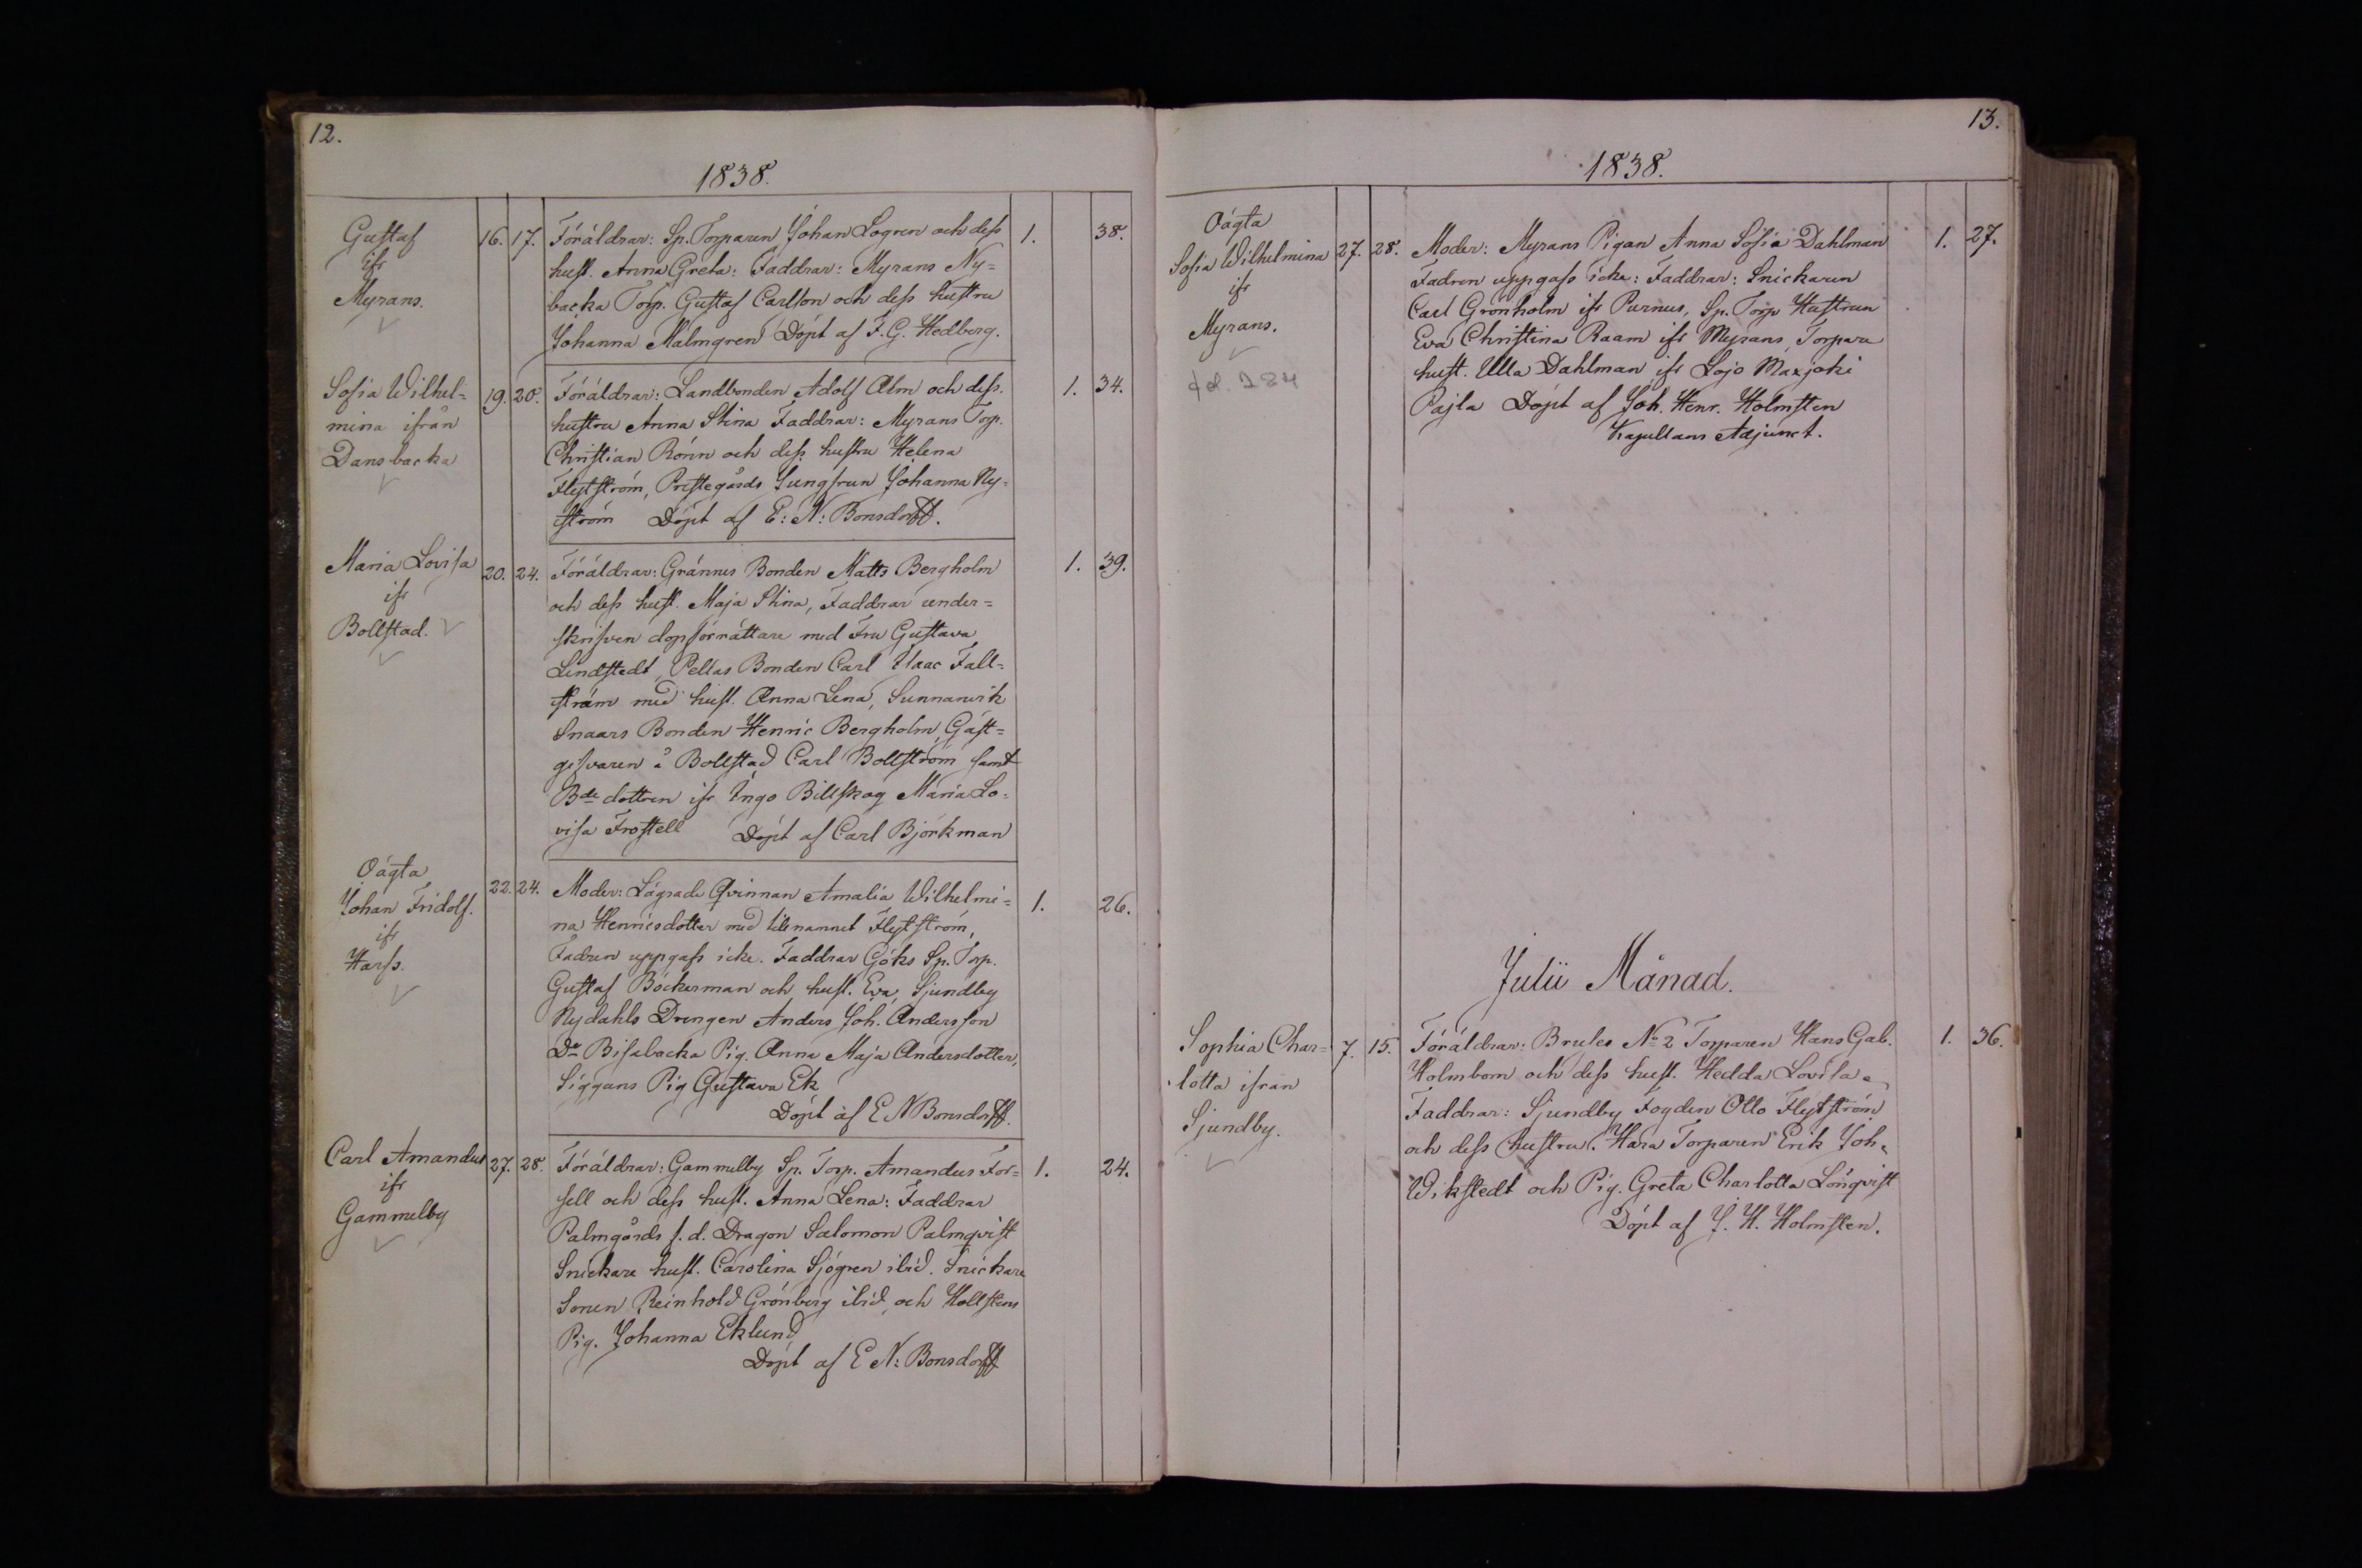 12.
1838.
Gustaf
ifr
Myrans.
16. 17. Föräldrar: Sp. Torparen Johan Logren och dess
hust. Anna Greta: Faddrar: Myrans Ny=
backa Torp. Gustaf Carlson och dess hustru
Johanna Malmgren Döpt af F. G. Hedberg.
1. 38.
Sofia Wilhel=
mina ifrån
Dansbacka
19. 20. Föräldrar: Landbonden Adolf Alm och dess
hustru Anna Stina Faddrar: Myrans Torp.
Christian Rönn och dess hustru Helena
Flytström, Prestegårds Jungfrun Johanna Ny=
ström Döpt af E: N: Bonsdorff.
1. 34.
Maria Lovisa
ifr
Bollstad.
20. 24. Föräldrar: Grännes Bonden Matts Bergholm
och dess hust. Maja Stina, Faddrar under=
skrifven dopförrättare med Fru Gustava
Lindstedt, Pellas Bonden Carl Isaac Fall=
ström med hust. Anna Lena, Sunnanvik
Snaars Bonden Henric Bergholm, Gäst=
gifvaren å Bollstad Carl Bollström samt
Bde dottren ifr Ingo Billskog Maria Lo=
visa Frostell Döpt af Carl Björkman
1. 39.
Oägta
Johan Fridolf.
ifr
Harfs.
22. 24. Moder: Lägrade Qvinnan Amalia Wilhelmi=
na Henricsdotter med tillnamnet Flytström,
Fadren uppgafs icke. Faddrar Göks Sp. Torp.
Gustaf Böckerman och hust. Eva, Sjundby
Nydahls Drengen Anders Joh. Andersson
Do Bisabacka Pig. Anna Maja Andersdotter,
Siggans Pig Gustava Ek
Döpt af E N Bonsdorff.
1. 26.
Carl Amandus
ifr
Gammelby
27. 28. Föräldrar: Gammelby Sp. Torp. Amandus For=
sell och dess hust. Anna Lena: Faddrar
Palmgårds f. d. Dragon Salomon Palmqvist
Snickare hust. Carolina Sjögren ibid. Snickare
Sonen Reinhold Grönberg ibid, och Hollstens
Pig. Johanna Eklund
Döpt af E N: Bonsdorff
1. 24.
13.
1838.
Oägta
Sofia Wilhelmina
ifr
Myrans.
27. 28. Moder: Myrans Pigan Anna Sofia Dahlman
Fadren uppgafs icke: Faddrar: Snickaren
Carl Grönholm ifr Purnus, Sp. Torp Hustrun
Eva Christina Raam ifr Myrans, Torpare
hust. Ulla Dahlman ifr Lojo Maxjoki
Pajla Döpt af Joh. Henr. Holmsten
Kapellans Adjunct.
1. 27.
Julii Månad.
Sophia Char=
lotta ifrån
Sjundby.
7. 15. Föräldrar: Brules No 2 Torparen Hans Gab.
Holmbom och dess hust. Hedda Lovisa.
Faddrar: Sjundby Fogden Otto Flytström
och dess hustru. Hara Torparen Erik Joh.
Wikstedt och Pig. Greta Charlotta Lönqvist
Döpt af J. H. Holmsten.
1. 36.